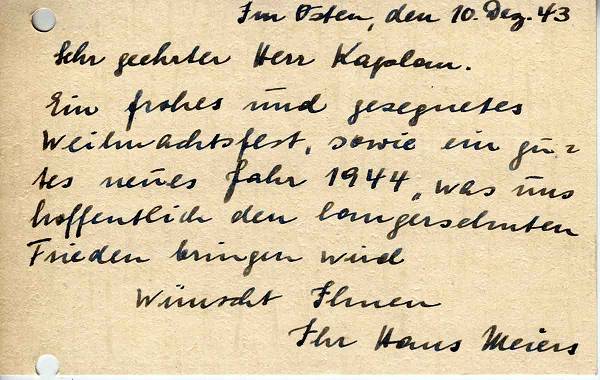 Im Osten, den 10. Dez. 43
Sehr geehrter Herr Kaplan.
Ein frohes und gesegnetes
Weihnachtsfest, sowie ein gu=
tes neues Jahr 1944, was uns
hoffentlich den langersehnten
Frieden bringen wird
Wünscht Ihnen
Ihr Hans Meiers